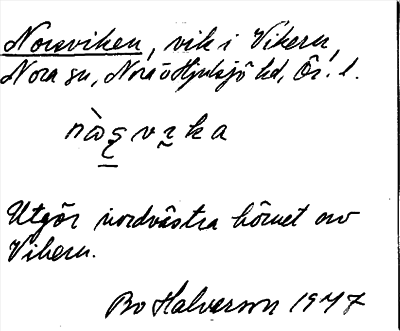 Norsviken, vik i Vikern,
Nora sn, Nora o Hjulsjö hd, Ör. l.
Utgör nordvästra hörnet av
Vikern.
Bo Halvarson 1947